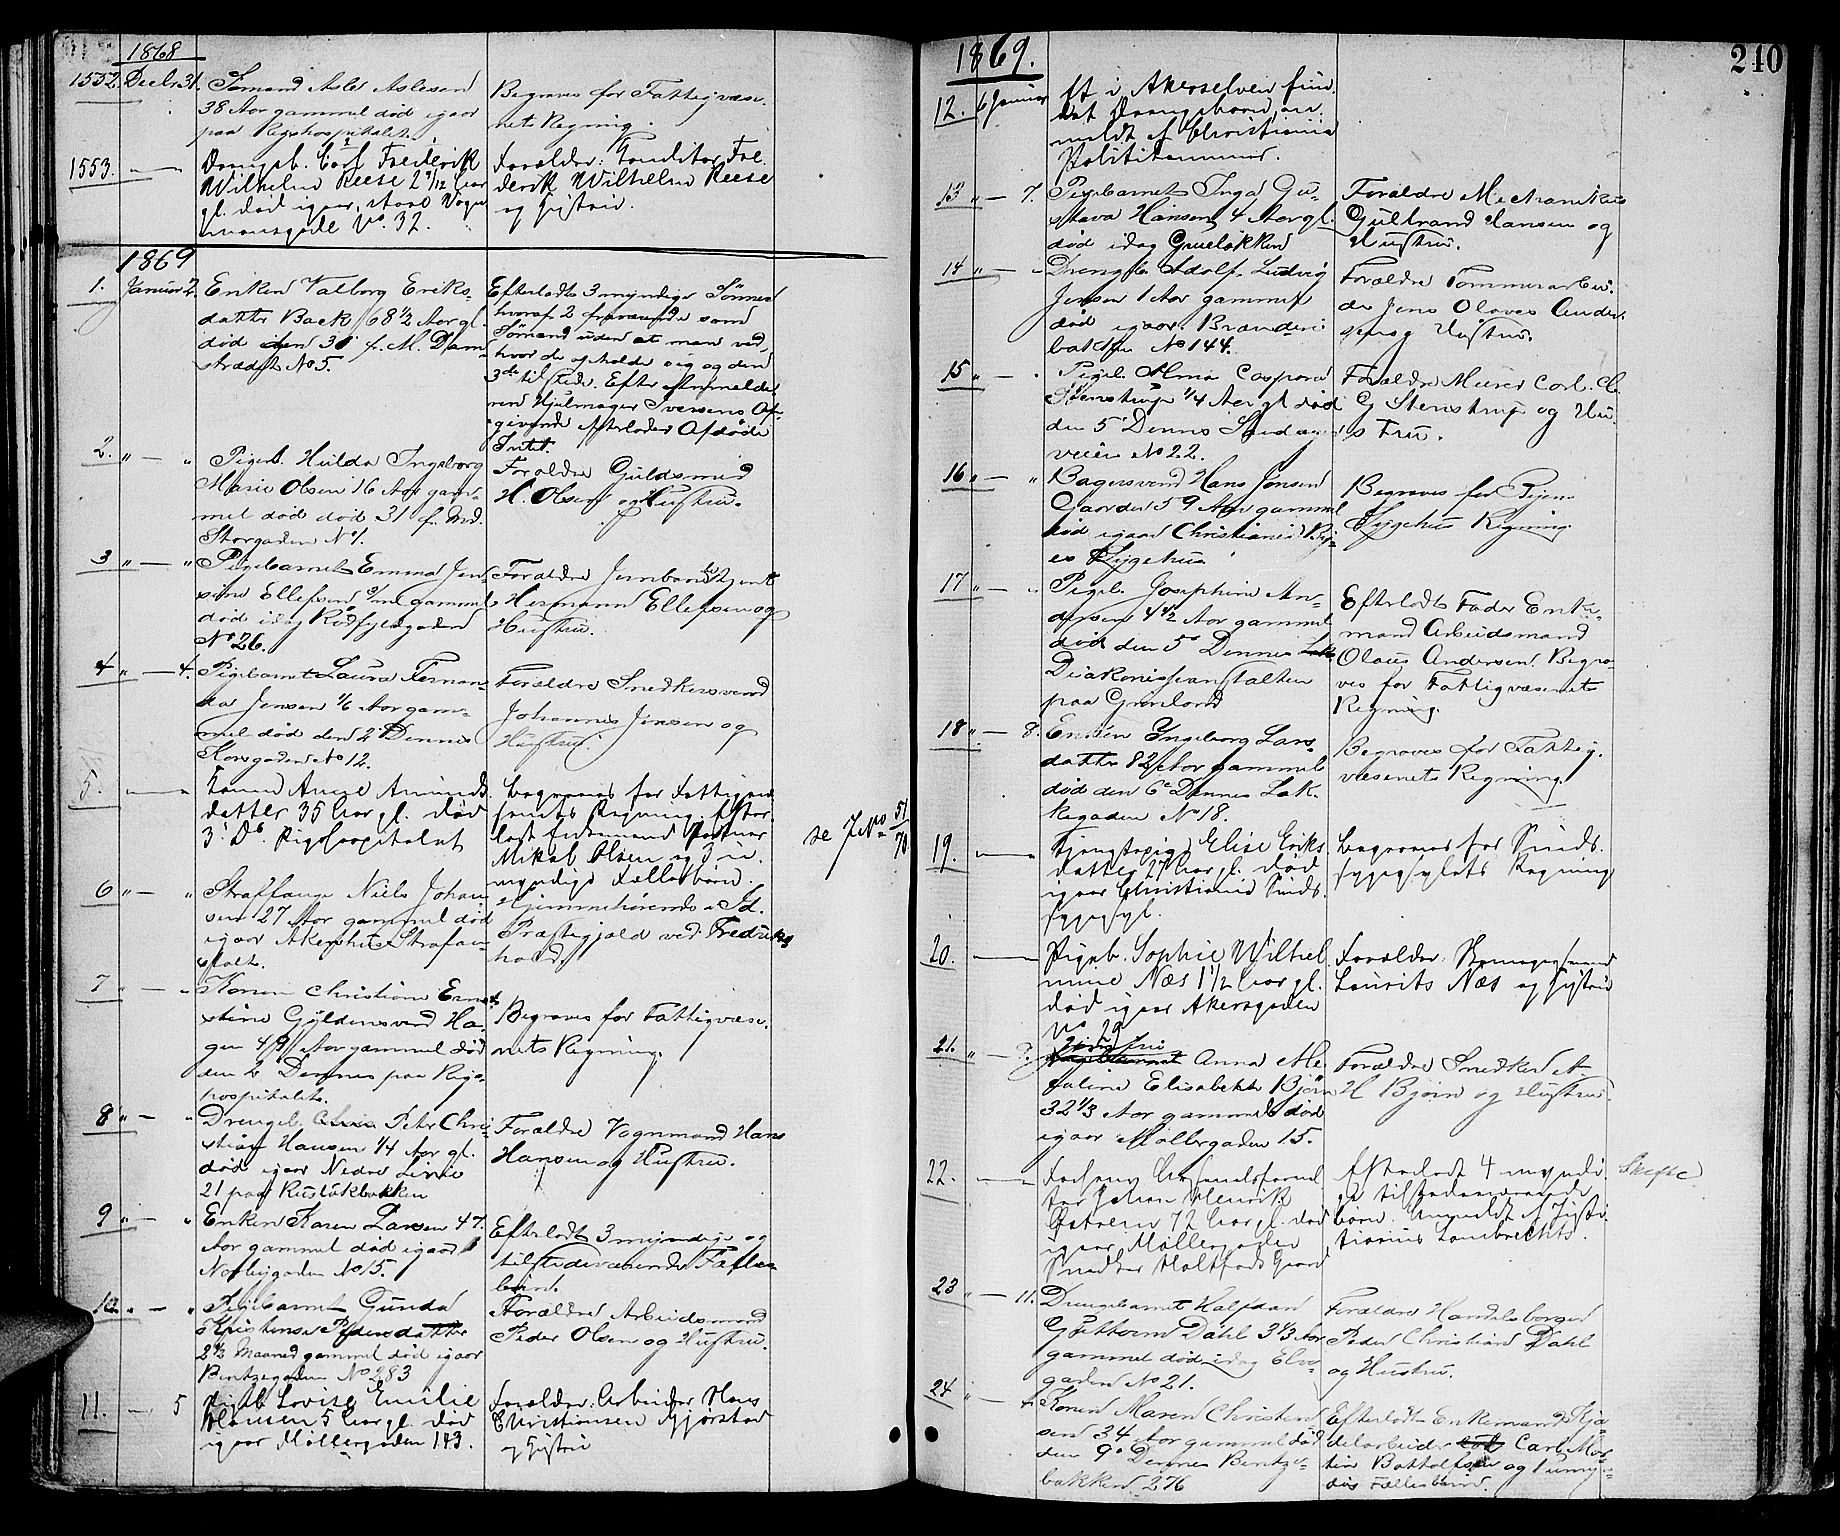 1868
1552. Decbr 31. Sømand Asle Aslesen
38 Aar gammel død igaar
paa Rigshospitalet.
Begraves for Fattigvæse-
nets Regning.
1553. Drengeb. Carl Frederik
Wilhelm Reese 2 9/12 Aar
gl. død igaar, store Vogn-
mansgade No. 32.
Forældre: Konditor Fre-
derik Wilhelm Reese
og Hustru.
1869
1. Januar 2. Enken Valborg Eriks-
datter Back 68 1/2 Aar gl.
død den 31 f. M. Dam-
strædet No 5.
Efterladte 3 myndige Sønner
hvoraf 2 fraværende som
Sømænd uden at man ved,
hvor de opholde sig og den
3de tilstede. Efter Anmelde-
ren Hjulmager Iversens Op-
givende efterlader Afdøde
Intet.
2. " — " Pigeb. Hulda Ingeborg
Marie Olsen 16 Aar gam-
mel død død 31 f. Md.
Storgaden No 1.
Forældre Guldsmed
H. Olsen og Hustru.
3 " — " Pigebarnet Emma Jen-
sine Ellefsen gammel
død idag Rødfyldgaden
No 26.
Forældre
Hermann Ellefsen og
Hustru.
4 " — 4. Pigebarnet Laura Fernan-
da Jensen 1/6 Aar gam-
mel død den 2' Dennes
Korsgaden No 12.
Forældre Snedkersvend
Johannes Jensen og
Hustru.
5. Konen Anne Amunds-
datter 35 Aar gl. død
3' Ds. Rigshospitalet
Begraves for Fattigvæ-
senets Regning. Efter-
ladt Enkemand
Mikal Olsen og 3 u-
myndige Fællesbørn.
se J No 51/70
6 " — " Straffange Niels Johan-
sen 27 Aar gammel død
igaar Akershus Strafan-
stalt.
Hjemmehørende i Id.
Præstegjæld ved Fredriks-
hald.
7 " — " Konen Christiane Ernes-
tine Gyldensvend Ha-
gen 49 Aar gammel død
den 2 Dennes paa Rigs-
hospitalet.
Begraves for Fattigvæse-
nets Regning.
8 " — " Drengeb. Peter Chri-
stian Hansen 1/4 Aar gl.
død igaar Nedre Linie
21 paa Ruseløkbakken
Forældre Vognmand Hans
Hansen og Hustru.
9 " — " Enken Karen Larsen 47.
Aar gammel død igaar
Norbygaden No 15.
Efterladt 3 myndige og
tilstedeværende Fælles-
børn.
10 " — " Pigebarnet Gunda
Kristense Pedersdatter
2 1/2 Maaned gammel død igaar
Bentzegaden No 283
Forældre Arbeidsmand
Peder Olsen og Hustru.
11. — 5 Pigeb. Lovise Emilie
Hansen 5 Aar gl. død
igaar Møllergaden 143.
Forældre: Arbeider Hans
Christiansen Gjørstad
og Hustru
1869.
240
12. 6 Januar Et i Akerselven fun-
det Drengebarn, an-
meldt af Christiania
Politikammer.
13 " — 7. Pigebarnet Inga Gu-
stava Hansen 4 Aar gl.
død idag Grueløkken
Forældre Mechanikus
Gulbrand Hansen og
Hustru.
14 " — " Drengeb. Adolf Ludvig
Jensen 1 Aar gammel
død igaar. Brænderi-
bakken No 144.
Forældre Tømmerarbei-
der Jens Olaves Ander-
sen og Hustru.
15 " — " Pigeb. Alma Caspara
Stenstrup 1/4 Aar gl død
den 5' Dennes
veien No 22.
Forældre Murer Carl
Stenstrup og Hu-
stru.
16 " — " Bagersvend Hans Jensen
Gaarder 59 Aar gammel
død igaar Christiania By-
es Sygehus
Begraves for Byens
Sygehus Regning
17 " — " Pigeb. Josephine An-
dersen 4 1/2 Aar gammel
død den 5' Dennes
Diakonisseanstalten
paa Grønland
Efterladt Fader Enke-
mand Arbeidsmand
Olaus Andersen. Begra-
ves for Fattigvæsenets
Regning.
18 " — 8. Enken Ingeborg Lars-
datter 82 Aar gammel
død den 6' Dennes Lak-
kegaden No 18.
Begraves for Fattig-
væsenets Regning
19. Tjenestepige Elise Eriks-
datter 27 Aar gl. død
igaar Christiania Sinds-
sygeasyl.
Begraves for Sinds-
sygeasylets Regning
20. Pigeb. Sophie Wilhel-
mine Næs 1 1/2 Aar gl.
død igaar Akersgaden
No 29
Forældre:
Laurits Næs og Hustru
21. " — Anna Ma-
galina Elisabeth Bjørn
32 1/3 Aar gammel død
igaar Møllergaden 15.
Forældre Snedker A.
H Bjørn og Hustru.
22. Forhenv. Arsenalsforval-
ter Johan Henrik
72 Aar gl. død
igaar Møllergaden
Snedker Holtfodts Gaard
Efterladt 4 myndi-
ge tilstedeværende
børn. Anmeldt af Justi-
tiarius Lambrechts.
Skifte
23 " — 11. Drengebarnet Halfdan
Guttorm Dahl 3 1/3 Aar
gammel død idag Elve-
gaden No 21.
Forældre Handelsborger
Peder Christian Dahl
og Hustru.
24 " — " Konen Maren Christen-
sen 34 Aar gammel død
den 9' Dennes Bentze-
bakken 276
Efterladt Enkemand Kje-
delarbeider Carl Mar-
tin Bottolfsen og 1 umyn-
dig Fællesbarn.